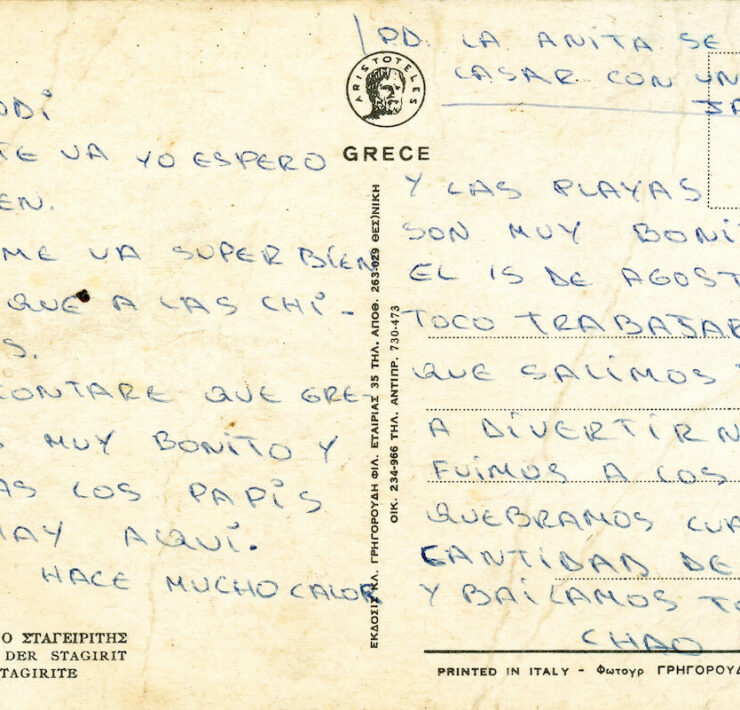 ODI
TE VA YO ESPERO
EN.
ME VA SUPER BIEN
QUE A LAS CHI-
S.
CONTARE QUE GRE-
S MUY BONITO Y
AS LOS PAPIS
HAY AQUI.
HACE MUCHO CALOR
Ο ΣΤΑΓΕΙΡΙΤΗΣ
DER STAGIRIT
TAGIRITE
ARISTOTELES
GRECE
ΕΚΔΟΣΙΣ ΚΛ. ΓΡΗΓΟΡΟΥΔΗ ΦΙΛ. ΕΤΑΙΡΙΑΣ 35 ΤΗΛ. ΑΠΟΘ. 263-029 ΘΕΣ)ΝΙΚΗ
ΟΙΚ. 234-966 ΤΗΛ. ΑΝΤΙΠΡ. 730-473
P.D. LA ANITA SE
CASAR CON UN
Y LAS PLAYAS
SON MUY BONI
EL 15 DE AGOST
TOCO TRABAJAR
QUE SALIMOS
A DIVERTIRN
FUIMOS A LOS
QUEBRAMOS CUA
CANTIDAD DE
Y BAILAMOS TO
CHAO
PRINTED IN ITALY - Φωτογρ ΓΡΗΓΟΡΟΥΔ